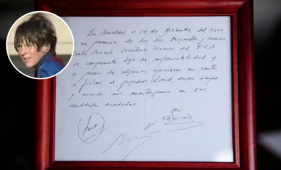 En Barcelona, a 14 de Diciembre del 2000
en presencia de los Srs Minguella y Horacio
Carles Rexach Secretario Técnico del F.C.B
se compromete bajo su responsabilidad y
a pesar de algunas opiniones en contra
a fichar al jugador Lionel Messi siempre
y cuando nos mantengamos en las
cantidades acordadas